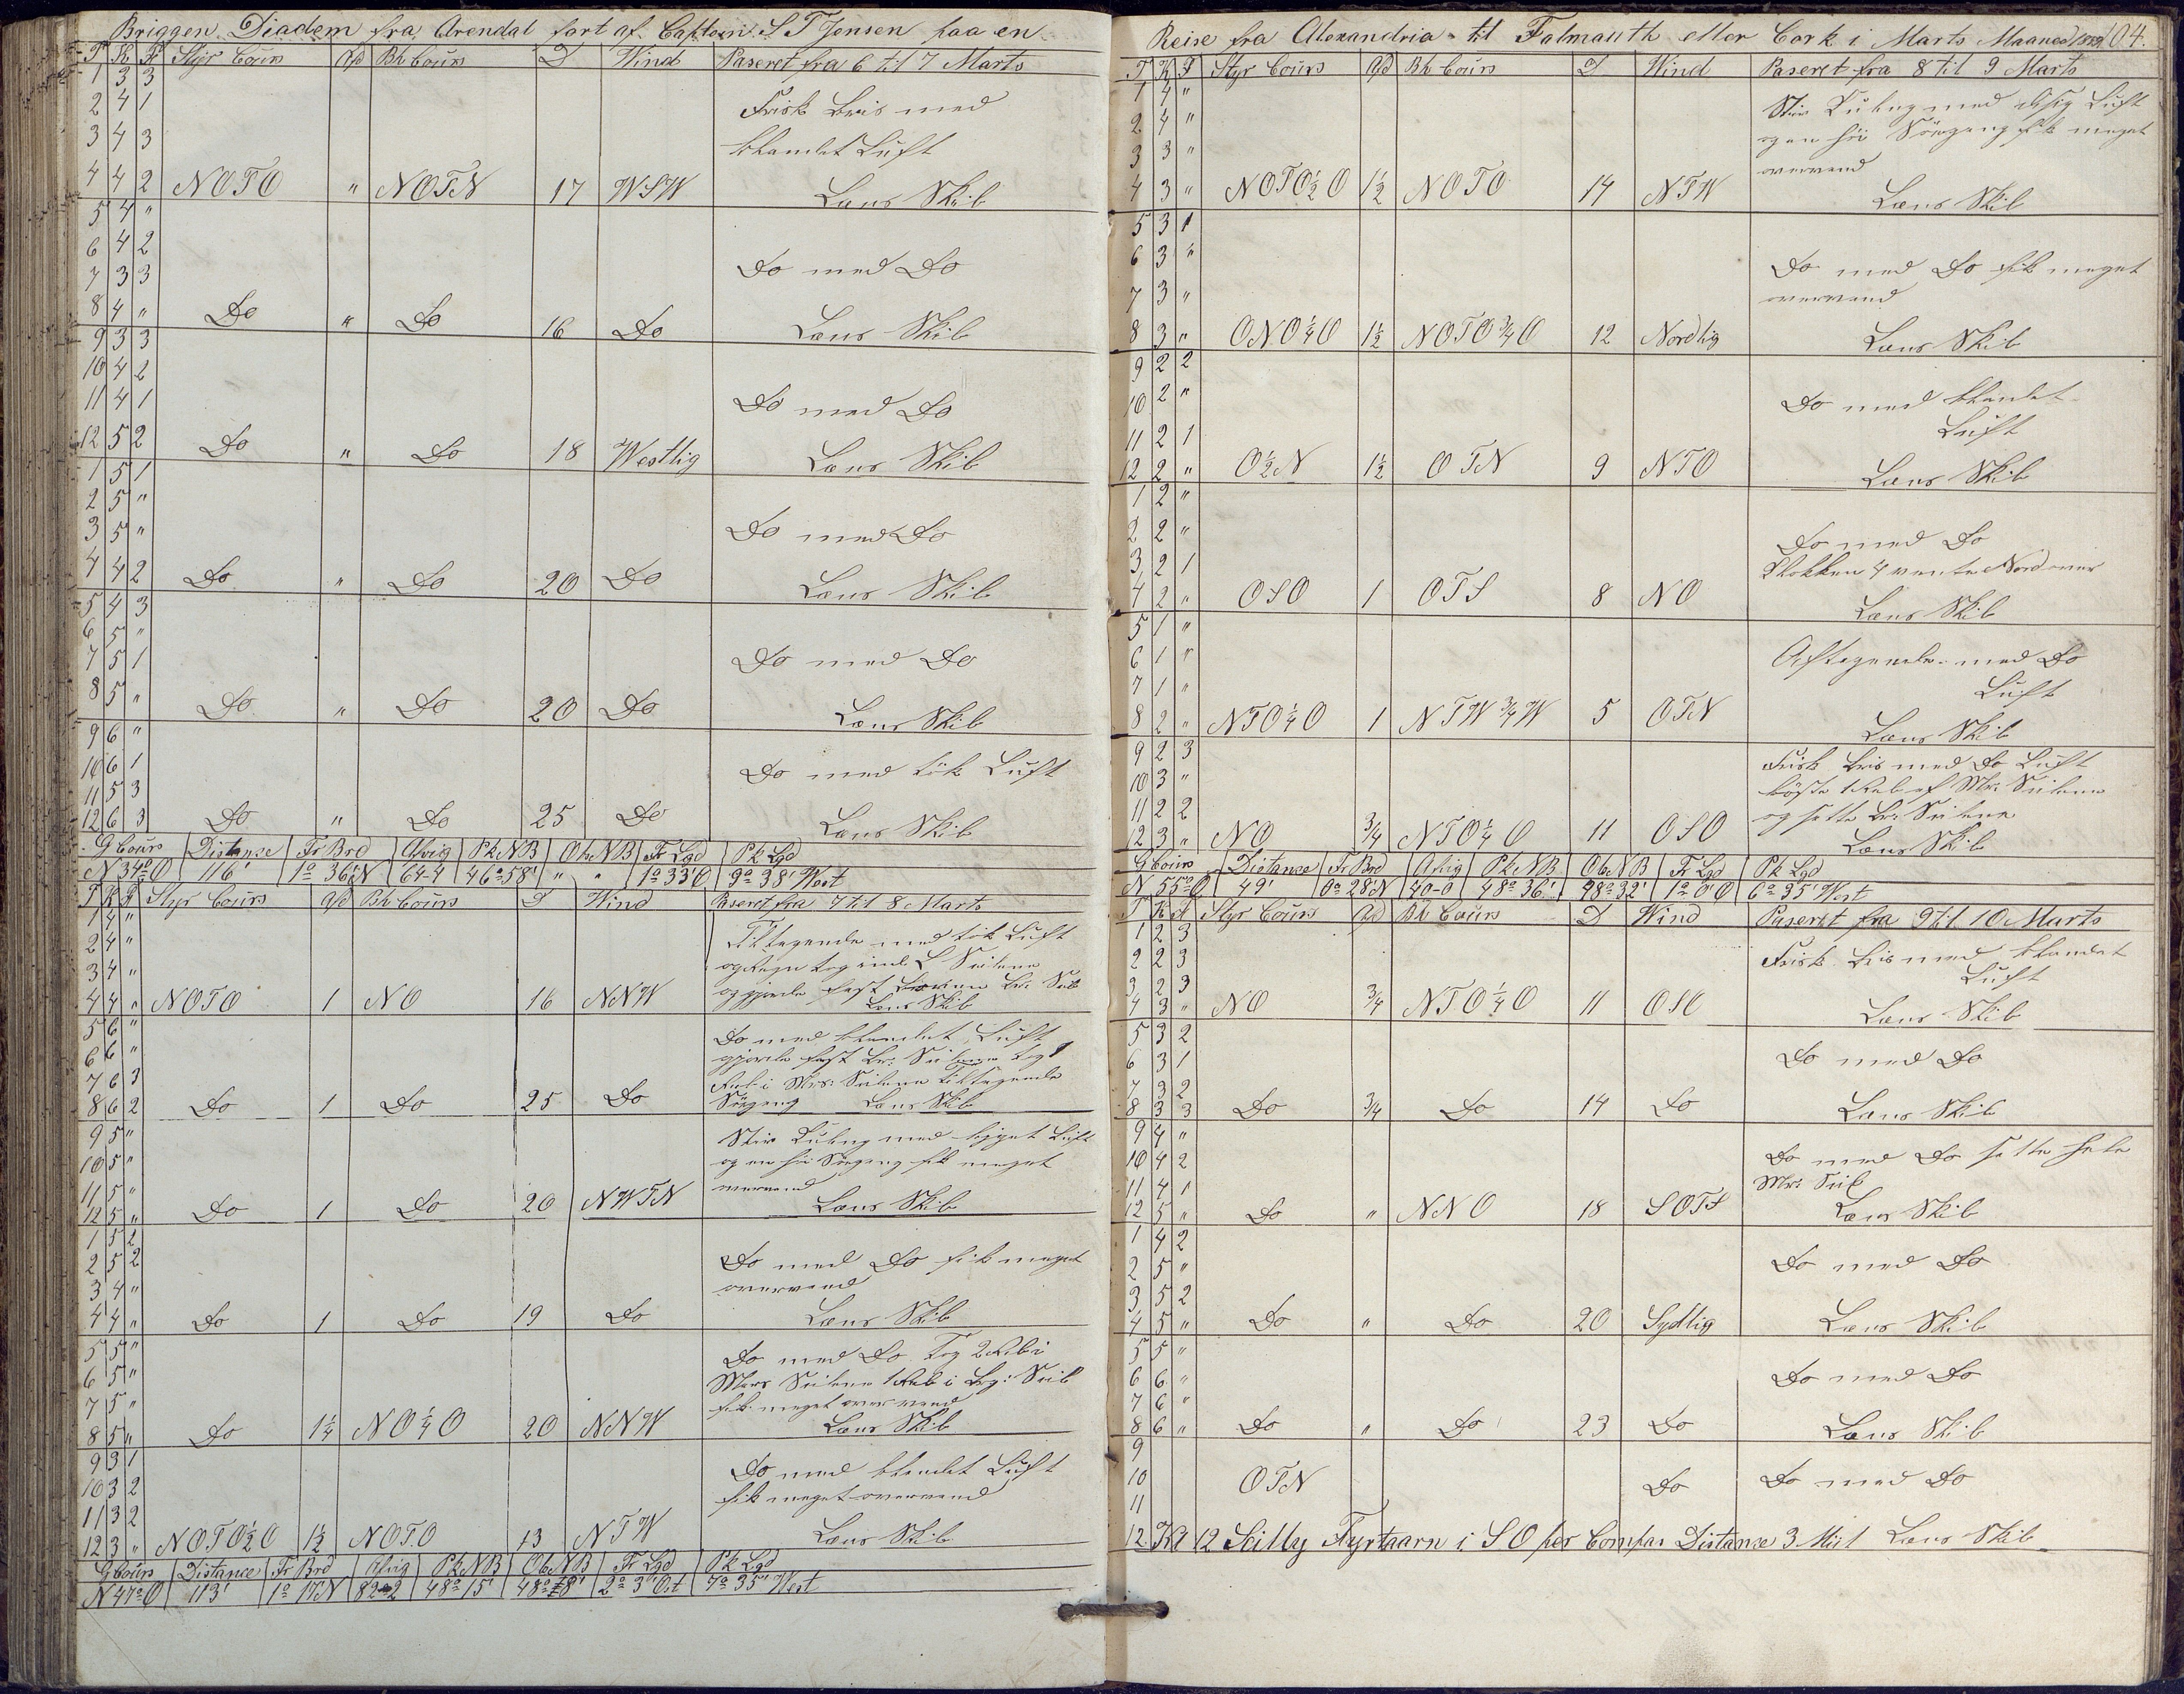 Briggen Diadem fra Arendal fort af Captein S T Jensen paa en
T K F Styr Cours Afd Bh Cours D Wind Paseret fra 6 til 7 Marts
1 3 3
2 4 1 Frisk Bris med
3 4 3 blandet Luft
4 4 2 NOTO " NOTN 17 WSW Læns Skib
5 4 "
6 4 2
7 3 3 Do med Do
8 4 " Do " Do 16 Do Læns Skib
9 3 3
10 4 2
11 4 1 Do med Do
12 5 2 Do " Do 18 Westlig Læns Skib
1 5 1
2 5 "
3 5 " Do med Do
4 4 2 Do " Do 20 Do Læns Skib
5 4 3
6 5 "
7 5 1 Do med Do
8 5 " Do " Do 20 Do Læns Skib
9 6 "
10 6 1 Do med tök Luft
11 5 3
12 6 3 Do " Do 25 Do Læns Skib
G Cours Distanse Fr Brd Afvig Pk NB Ob NB Fr Lgd Pk Lgd
N 34° O 116' 1° 36' N 64-4 46° 58' " " 1° 33' O 9° 38' West
T K F Styr Cours Afd Bh Cours D Wind Paseret fra 7 til 8 Marts
1 4 "
2 4 " Tiltagende med tök Luft
3 4 " og Regn tog inde L Seilene
og gjorde fast Br: Seil
4 4 " NOTO 1 NO 16 NNW Læns Skib
5 6 " Do med blandet Luft
6 6 " gjorde fast Br: Seilene tog 1
7 6 3 Reb i Mrs: Seilene Tiltagende
8 6 2 Do 1 Do 25 Do Söegang Læns Skib
9 5 " Stiv Kuling med bygget Luft
10 5 " og en höi Söegang fik meget
11 5 " overvand
12 5 " Do 1 Do 20 NWTN Læns Skib
1 5 2
2 5 2 Do med Do fik meget
3 4 " overvand
4 4 " Do 1 Do 19 Do Læns Skib
5 5 " Do med Do Tog 2 Reb i
6 5 " Mers Seilene 1 Reb i Brg: Seil
7 5 " fik meget overvand
8 5 " Do 1¼ NO¼O 20 NNW Læns Skib
9 3 1
10 3 2 Do med blandet Luft
11 3 2 fik meget overvand
12 3 " NOTO½O 1½ NOTO 13 NTW Læns Skib
G Cours Distanse Fr Brd Afvig Pk NB Ob NB Fr Lgd Pk Lgd
N 47° O 113' 1° 17' N 82-2 48° 15' 48° 8' 2° 3' Ot 7° 35' West
Reise fra Alexandria til Falmauth eller Cork i Marts Maaned 104.
T K F Styr Cours Afd Bh Cours D Wind Paseret fra 8 til 9 Marts
1 4 " Stiv Kuling med disig Luft
2 4 " og en höi Söegang fik meget
3 3 " overvand
4 3 " NOTO½O 1½ NOTO 14 NTW Læns Skib
5 3 1
6 3 " Do med Do fik meget
7 3 " overvand
8 3 " ONO¼O 1½ NOTO¾O 12 Nordlig Læns Skib
9 2 2
10 2 " Do med blandet
11 2 1 Luft
12 2 " O½N 1½ OTN 9 NTO Læns Skib
1 2 "
2 2 " Do med Do
3 2 1 Klokken 4 vente Nordover
4 2 " OSO 1 OTS 8 NO Læns Skib
5 1 "
6 1 " Aftagende med Do
7 1 " Luft
8 2 " NTO¼O 1 NTW¾W 5 OTN Læns Skib
9 2 3 Frisk Bris med Do Luft
10 3 " 1 Reb af Mr: Seilene
11 2 2 og sette Br: Seilene
12 3 " NO ¾ NTO¼O 11 OSO Læns Skib
G Cours Distanse Fr Brd Afvig Pk NB Ob NB Fr Lgd Pk Lgd
N 55° O 49' 0° 28' N 40-0 48° 36' 48° 32' 1° 0' O 6° 35' West
T K F Styr Cours Afd Bk Cours D Wind Paseret fra 9 til 10 Marts
1 2 3
2 2 3 Frisk Bris med blandet
3 2 3 Luft
4 3 " NO ¾ NTO¼O 11 OSO Læns Skib
5 3 2
6 3 1 Do med Do
7 3 2
8 3 3 Do ¾ Do 14 Do Læns Skib
9 4 "
10 4 2 Do med Do sette hele
11 4 1 Mr: Seil
12 5 " Do " NNO 18 SOTS Læns Skib
1 4 2
2 5 " Do med Do
3 5 2
4 5 " Do " Do 20 Sydlig Læns Skib
5 5 "
6 6 " Do med Do
7 6 "
8 6 " Do " Do 23 Do Læns Skib
9
10 OTN Do Do med Do
11
12 Kl 12 Scilly Fyrtaarn i SO per Compas Distanse 3 Miil Læns Skib